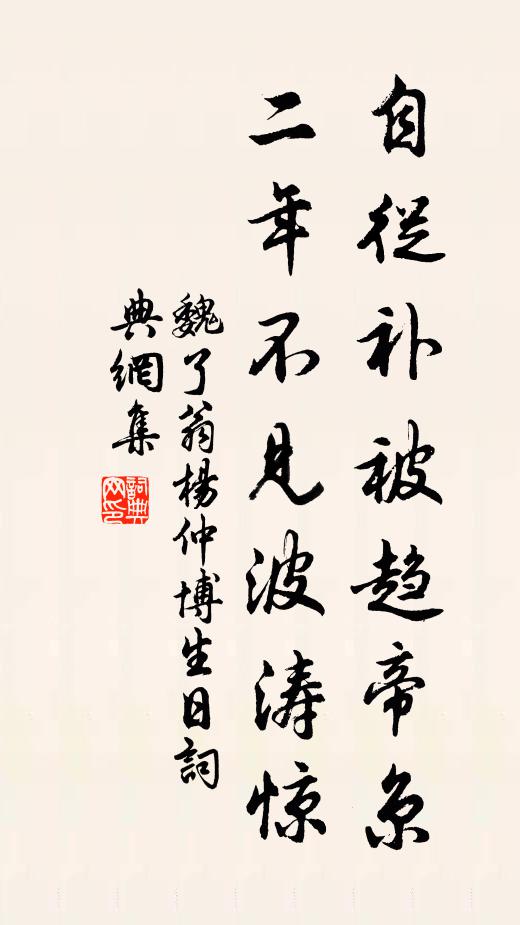 自從补被趋帝京
二年不見波涛惊
魏了翁楊仲博生日詞
典網集
詞典网印